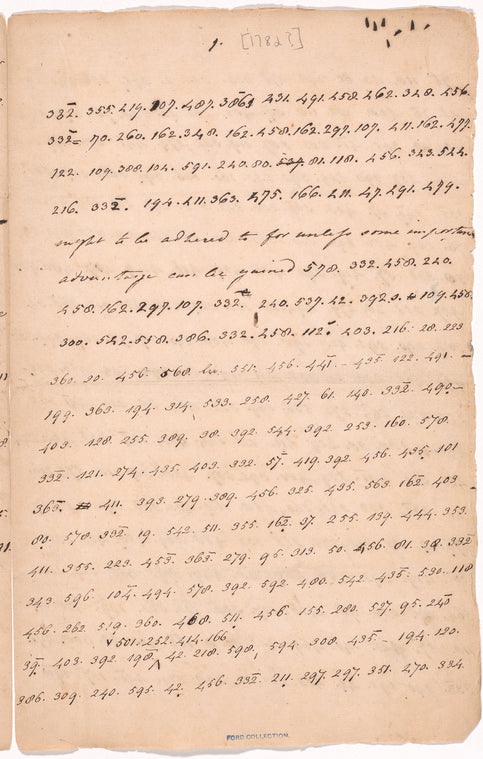 1. [1782?]
332̅. 355. 219. 107. 487. 386. 231. 491. 258. 262. 328. 456.
332= 70. 260. 162. 348. 162. 458. 162. 297. 107. 211. 162. 477.
122. 109. 388. 104. 591. 240. 80. 537. 81. 118. 456. 323. 524.
216. 332̅. 194. 211. 363. 475. 166. 211. 47. 291. 479.
might to be adhered to for unless some important
advantage can be gained 578. 332. 458. 240.
458. 162. 297. 107. 332̅ 240. 537. 42. 392. 109. 458.
300. 522. 558. 386. 332. 258. 112. 203. 216. 28. 223
360. 20. 456. 568. 551. 456. 441. – 435. 122. 491. –
199. 363. 194. 314. 533. 258. 427. 61. 140. 332̅ 490–
403. 128. 255. 389. 38. 392. 544. 392. 253. 160. 578
332̅. 121. 274. 435. 403. 332. 57. 419. 392. 456. 435. 101
363̅. 411. 393. 279. 389. 456. 325. 435. 563. 162̅ 403
80. 578. 332̅ 19. 542. 511. 355. 162̅. 37. 255. 139. 444. 353.
411. 355. 223. 453̅. 363̅. 279. 95. 313. 50. 456. 81. 38. 332̅
343. 596. 104̅. 494. 578. 392. 592. 480. 542. 435̅. 530. 118
456. 262. 519. 360. 468. 511. 456. 155. 280. 527. 95. 240̅
v 501. 252. 414. 166
39̅. 403. 392. 198̅. 42. 218. 598, 594. 308. 435̅ – 194. 120.
386. 309. 240. 595. 42. 456. 332̅. 211. 297. 297. 351. 270. 334
FORD COLLECTION.